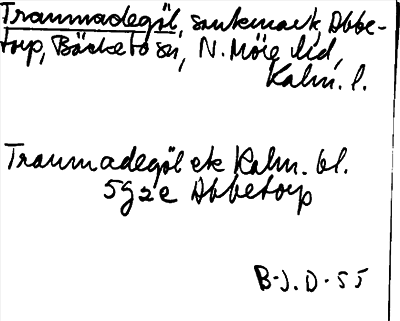 Traumadegöl, sankmark, Abbe-
torp, Bäckebo sn, N. Möre hd,
Kalm. l.
Traumadegöl ek Kalm. bl.
5g2e Abbetorp
B.J.D. 55